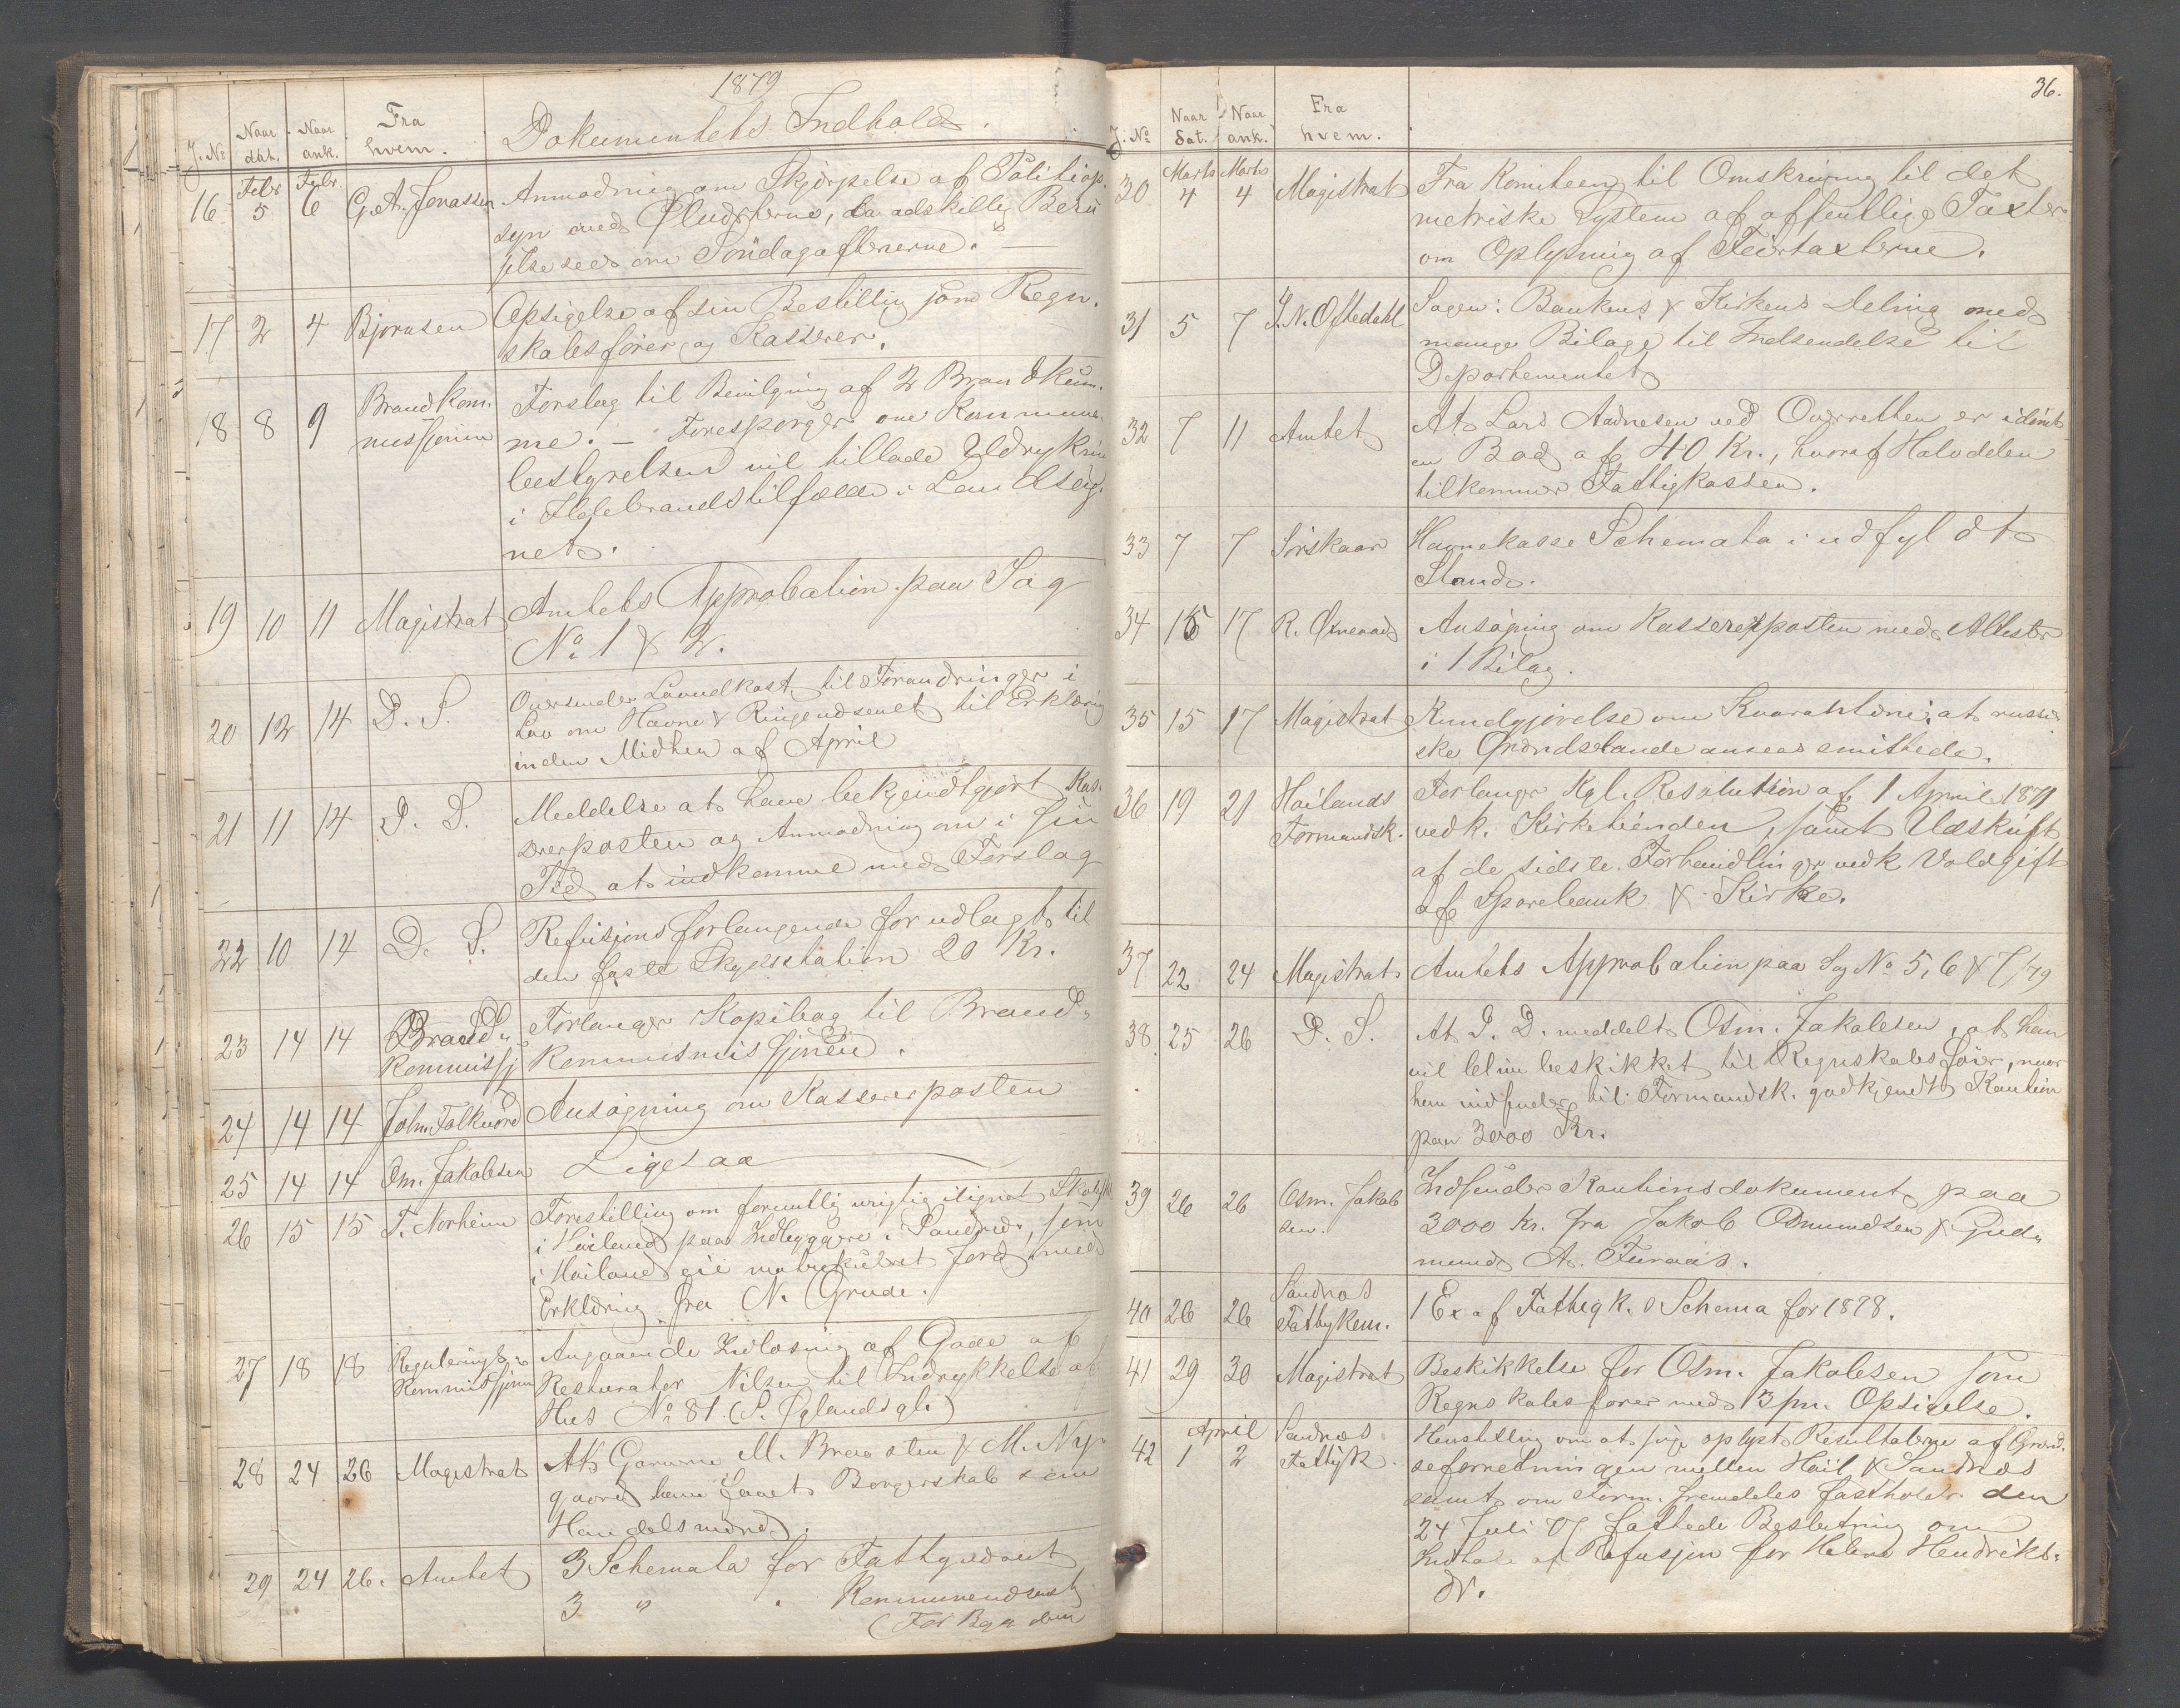 1879
J. No Naar dat. Naar ank. Fra hvem. Dokumentets Indhold.
16 Febr 5 Febr 6 G. A. Jonassen Anmodning om Skjærpelse af Politiop-
syn med Øludsterne, da adskillig Beru
selse sees om Söndagaftnerne. —
17 2 4 Bjørnsen Opsigelse af sin Bestilling som Regn.
skabsfører og Kasserer.
18 8 9 Brandkom. Forslag til Bevilgning af 2 Brandkum.
missjonen me. — Forespørger om Kommune
bestyrelsen vil tillade Udrykni
i Ildebrandstilfælde i Landsog
net.
19 10 11 Magistrat Amtets Approbation paa Sag
No 1 & 2.
20 12 14 D. S. Oversender Lovudkast til Forandringer i
Lov om Havne & Ringevæsenet til Erklæring
inden Midten af April
21 11 14 D. S. Meddelse at have bekjendtgjort Kas.
sererposten og Anmodning om i sin
Tid at indkomme med Forslag
22 10 14 D. S. Refusjons forlangende for udlagt til
den faste Skydsstation 20 Kr.
23 14 14 Brand" Forlanger Kopibog til Brand"
Kommissj Kommismissjonen.
24 14 14 Joh. Folkvord Ansøgning om Kassererposten
25 14 14 Osm. Jakobsen Ligesaa
26 15 15 T. Norheim Forestilling om formentlig urigtig ilignet Skolesk.
i Høiland paa Indbyggere i Sandnes, som
i Høiland eie matrikuleret Jord med
Erklæring fra N. Grude.
27 18 18 Regulerings Angaaende Indløsning af Gade af
Kommissjonen Resturatør Nilsen til Indrykkelse af
Hus No 81. (S. Øglændsgt)
28 24 26 Magistrat At Garver M. Braasten & M. Ny
gaard have faaet Borgerskab som
Handelsmænd.
29 24 26. Amtet 3 Schemata for Fattigvæsent
3 " " Kommunevæsnet
(For Bya dem
36.
J. No Naar dat. Naar ank. Fra hvem.
30 Marts 4 Marts 4 Magistrat Fra Komiteen til Omskrivning til det
metriske System af offentlige Taxter
om Oplysning af Feiertaxterne.
31 5 7 J. N. Oftedahl Sagen: Bankens & Kirkens Deling med
mange Bilage til Indsendelse til
Departementet
32 7 11 Amtet At Lars Aadnesen ved Overretten er idømt
en Bod af 40 Kr., hvoraf Halvdelen
tilkommer Fattigkassen.
33 7 7 Sörskaar Havnekasse Schemata i udfyldt
Stand.
34 16 17 R. Ørnevad Ansögning om Kassererposten med Attester
i 1 Bilag.
35 15 17 Magistrat Kundgjørelse om Kvarantæne: at russi
ske Grændselande ansees smittede.
36 19 21 Høilands Forlanger Kgl. Resolution af 1 April 1871
Formandsk. vedk. Kirketienden, samt Udskrift
af de sidste Forhandlinger vedk. Voldgift
af Sparebank & Kirke.
37 22 24 Magistrat Amtets Approbation paa Sag No 5, 6 & 7/79
38 25 26 D. S. At J. D. meddelt Osm. Jakobsen, at han
vil blive beskikket til Regnskabsfører, naar
han indsender til Formandsk. godkjendt Kaution
paa 3000 Kr.
39 26 26 Osm. Jakob Indsender Kautionsdokument paa
sen. 3000 Kr. fra Jakob Osmundsen & Gud"
mund A. Furaas.
40 26 26 Sandnæs Fattigkom. 1 Ex. af Fattigk. Schema for 1878.
41 29 30 Magistrat Beskikkelse for Osm. Jakobsen som
Regnskabsfører med 3 m. Opsigelse.
42 April 1 2 Sandnæs Fattigk. Henstilling om at söge oplyst Resultaterne af Grænd.
seforretningen mellem Höil & Sandnæs
samt om Form. fremdeles fastholder den
24 Juli 77 fattede Beslutning om
Indtale af Refusjon for Helene Hendriks-
dr.